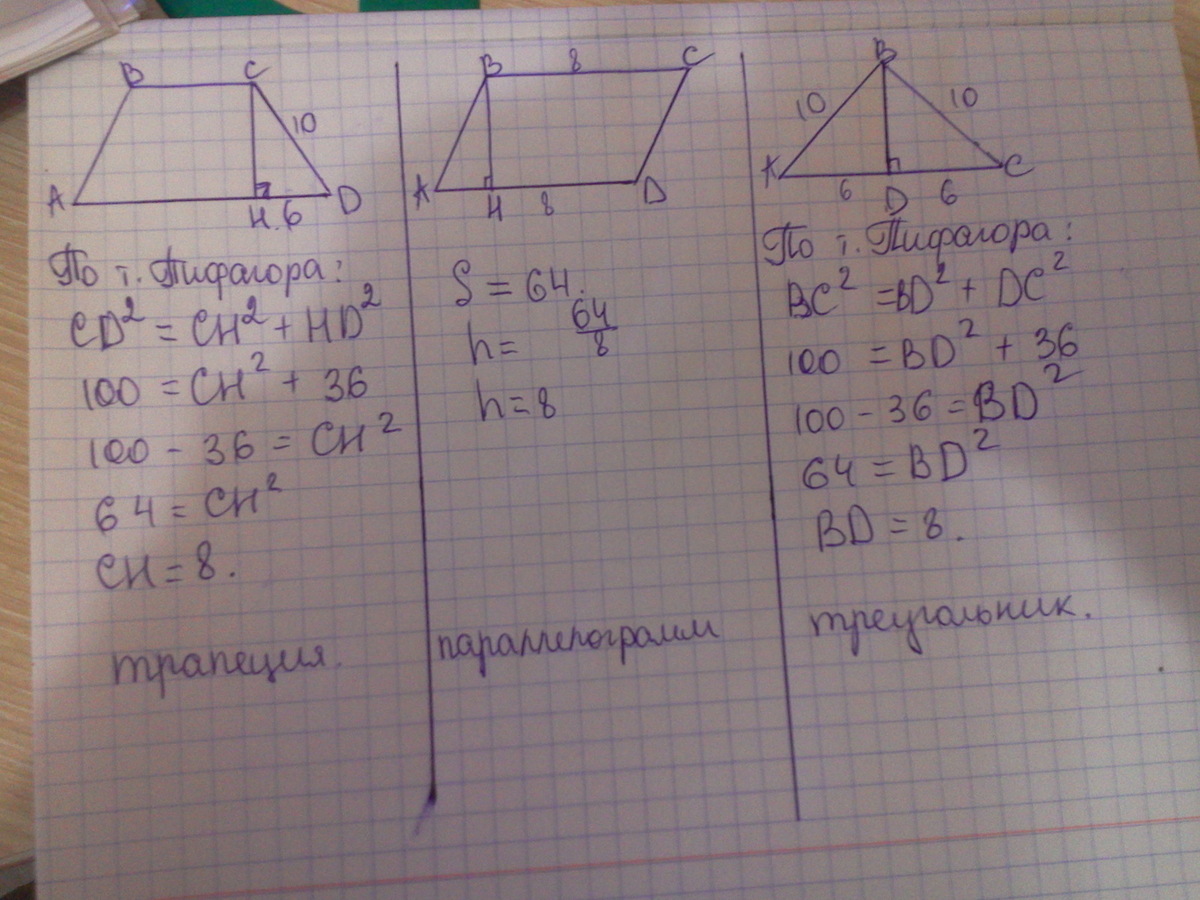 B C
10
A H 6 D
По т. Пифагора:
CD² = CH² + HD²
100 = CH² + 36
100 - 36 = CH²
64 = CH²
CH = 8.
трапеция.
B 8 C
A H 8 D
S = 64.
h = 64/8
h = 8
параллелограмм
B
10 10
A 6 D 6 C
По т. Пифагора:
BC² = BD² + DC²
100 = BD² + 36
100 - 36 = BD²
64 = BD²
BD = 8.
треугольник.